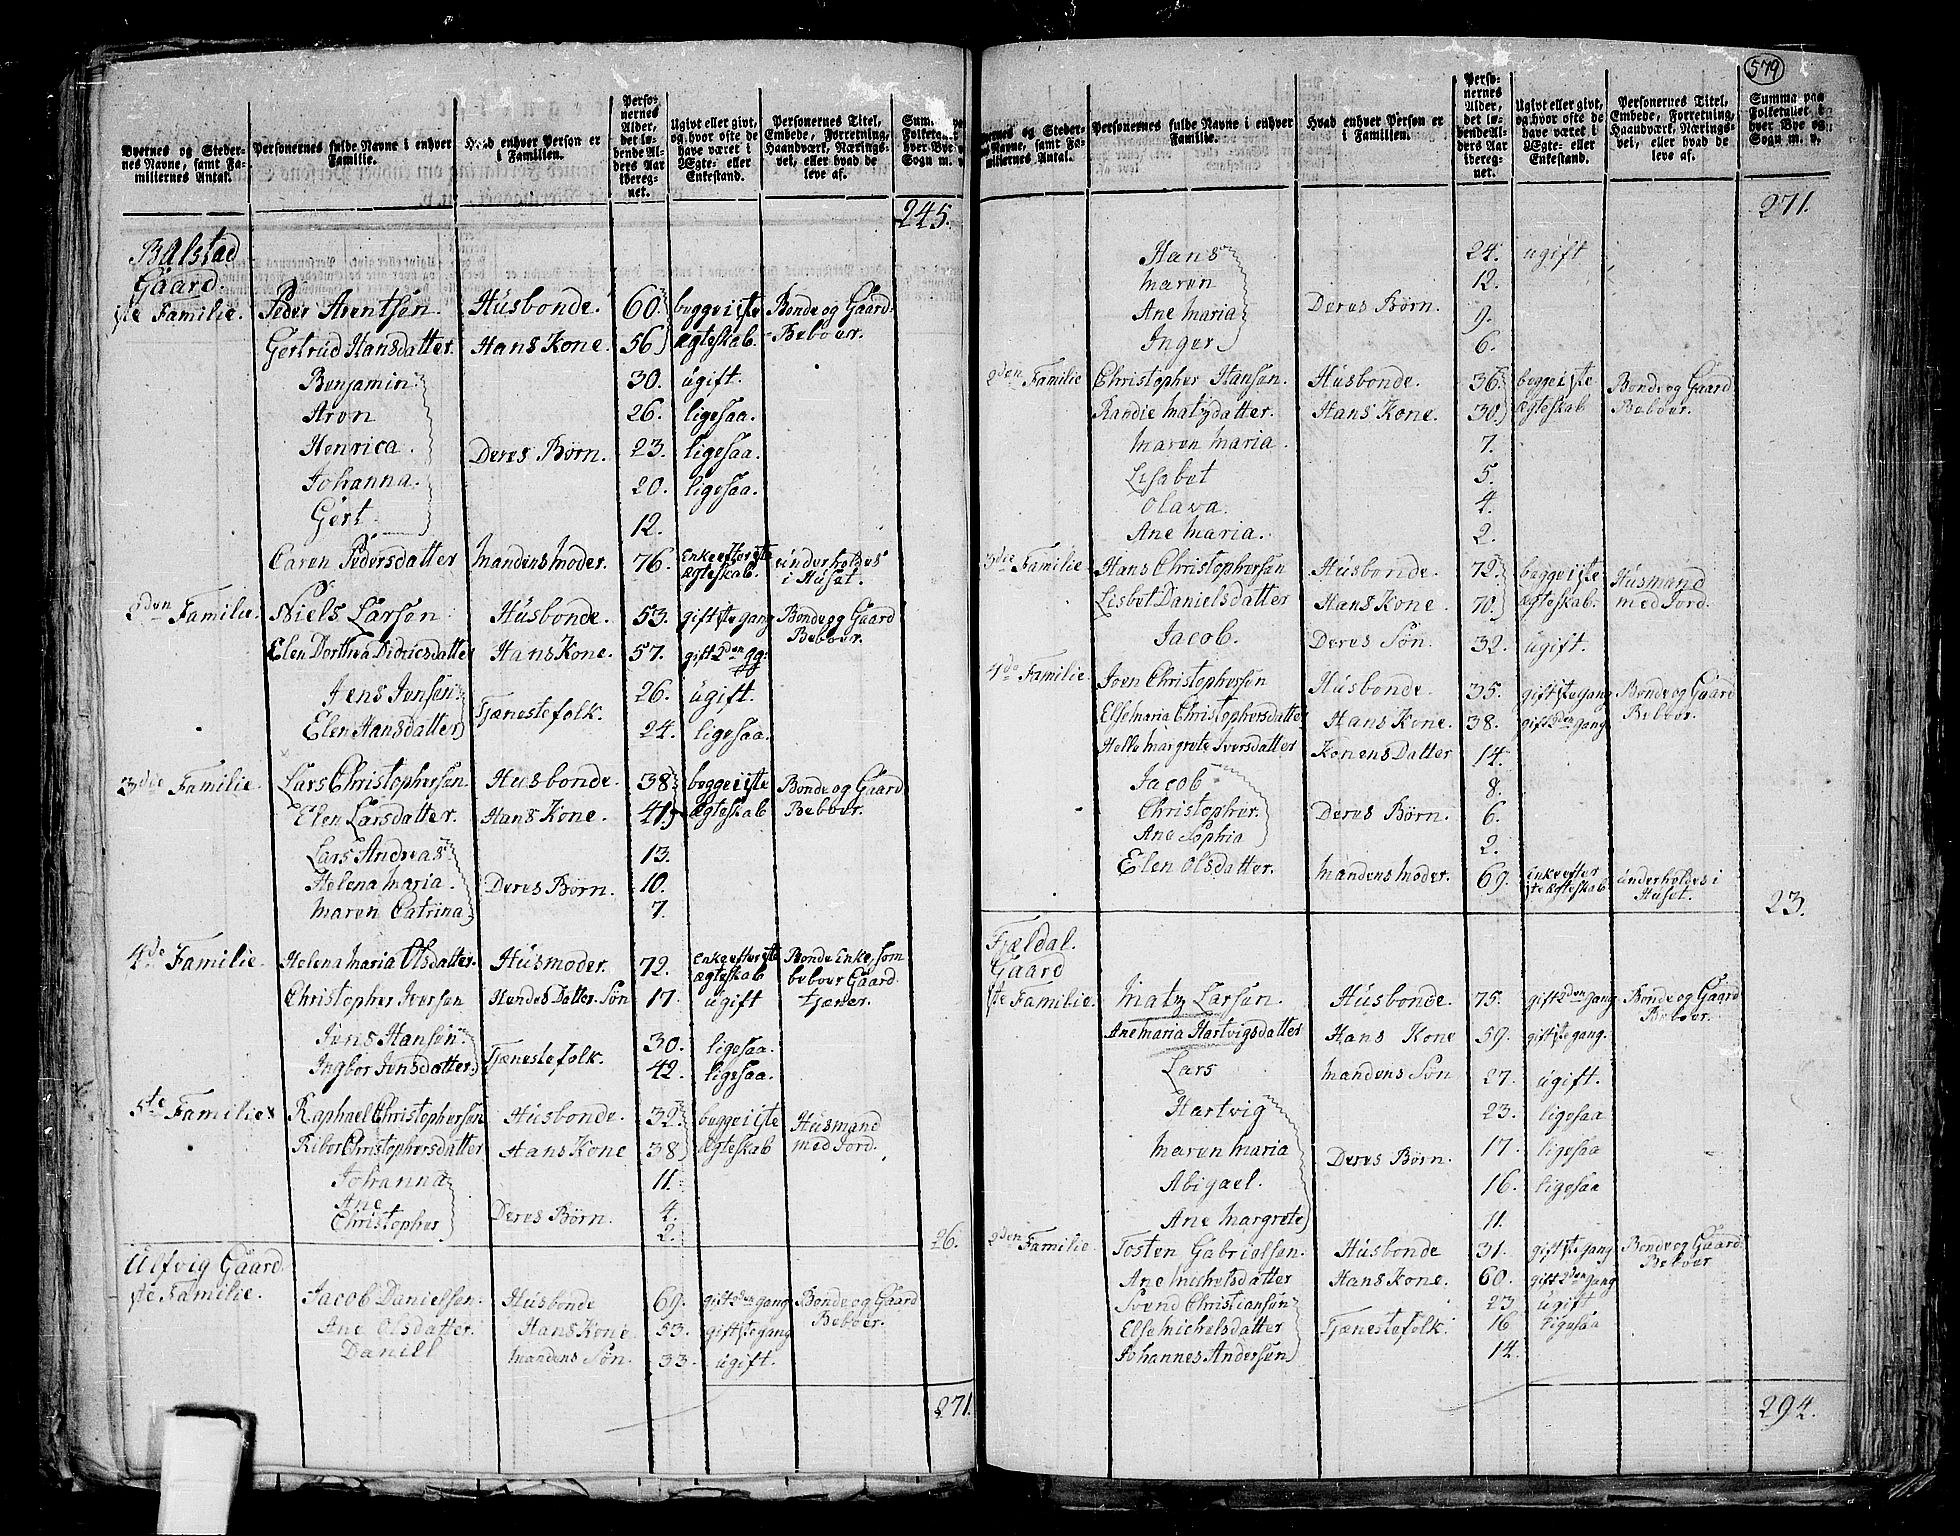 Byernes og Steder-
nes Navne, samt Fa-
miliernes Antal.
Personernes fulde Navne i enhver
Familie.
Hvad enhver Person er
i Familien.
Perso-
nernes
Alder,
det lø-
bende Al-
ders Aar
iberegnet.
Ugivt eller givt,
og hvor ofte de
have været i
Ægte- eller
Enkestand.
Personernes Titel,
Embede, Forretning,
Haandværk, Nærings-
vei, eller hvad de
leve af.
245.
Balstad
Gaard.
1ste Familie. Peder Arentsen Husbonde. 60 begge i 1ste Bonde og Gaard
Gertrud Hansdatter. Hans Kone. 56 ægteskab. Beboer.
Benjamin 30. ugift.
Aron 26. ligesaa.
Henrica. Deres Børn. 23. ligesaa.
Johanna. 20. ligesaa.
Gert. 12.
Caren Pedersdatter mandens moder. 76. Enke efter 1ste underholdes
ægteskab. i Huset.
2den Familie. Niels Larsen Husbonde. 53. gift 1ste gang Bonde og Gaard
Beboer.
Elen Dorthea Didricsdatter Hans Kone. 57. gift 2den gg.
Jens Jensen 26. ugift.
Tjænestefolk.
Elen Hansdatter 24. ligesaa.
3die Familie. Lars Christophersen Husbonde. 38 begge i 1ste Bonde og Gaard
Elen Larsdatter. Hans Kone. 41 ægteskab Beboer.
Lars Andreas 13.
Helena Maria. Deres Børn. 10.
Maren Catrina 7.
4de Familie. Helena Maria Olsdatter. Husmoder. 72. Enke efter 1ste Bonde Enke, som
ægteskab beboer Gaard
Christopher Iversen Hendes Datter Søn 17. ugift tjæner.
Jens Hansen 30. ligesaa.
Tjænestefolk.
Ingbor Jensdatter. 42. ligesaa.
5te Familie Raphael Christophersen Husbonde. 32. begge i 1ste Husmand
Ribor Christophersdatter Hans Kone 38 ægteskab med Jord.
Johanna 11.
Ane 4.
Deres Børn.
Christopher 2.
26.
Ulfvig Gaard.
1ste Familie. Jacob Danielsen. Husbonde 69. gift 2den gang Bonde og Gaard
Beboer.
Ane Olsdatter. Hans Kone 53. gift 1ste gang
Daniel mandens Søn. 33. ugift.
271.
579
Personernes fulde Navne i enhver
Familie.
Hvad enhver Person er
i Familien.
Perso-
nernes
Alder,
det lø-
bende Al-
ders Aar
iberegnet.
Ugivt eller givt,
og hvor ofte de
have været i
Ægte- eller
Enkestand.
Personernes Titel,
Embede, Forretning,
Haandværk, Nærings-
vei, eller hvad de
leve af.
Summa paa
Folketallet i
hver Bye og
Sogn m. v.
271.
Hans 24. ugift
Maren 12.
Deres Børn.
Ane Maria 9.
Inger 6.
2den Familie Christopher Hansen. Husbonde. 36 begge i 1ste Bonde og Gaard
Randie Matzdatter. Hans Kone. 30. ægteskab Beboer.
Maren Maria. 7.
Lisabet 5.
Olava. 4.
Ane Maria. 2.
3die Familie Hans Christophersen Husbonde. 72. begge i 1ste Husmand
Lisbet Danielsdatter Hans Kone. 70. ægteskab. med Jord.
Jacob. Deres Søn. 32. ugift.
4de Familie Joen Christophersen Husbonde. 35. gift 1ste gang Bonde og Gaard
Beboer.
Else Maria Christophersdatter Hans Kone. 38. gift 2den gang
Helle Margrete Iversdatter Konens Datter 14.
Jacob 8.
Christopher. Deres Børn. 6.
Ane Sophia 2.
Elen Olsdatter. mandens moder. 69. Enke efter underholdes i
1ste ægteskab Huset.
23.
Fjældal.
Gaard
1ste Familie. Matz Larsen. Husbonde. 75. gift 2den gang Bonde og Gaard
Beboer.
Ane Maria Hartvigsdatter Hans Kone 59. gift 1ste gang.
Lars mandens Søn 27. ugift.
Hartvig 23. ligesaa
Maren Maria Deres Børn. 17. ligesaa
Abigael. 16. ligesaa
Ane Margrete 11.
2den Familie. Tosten Gabrielsen. Husbonde 31. gift 1ste gang Bonde og Gaard
Beboer
Ane Michelsdatter Hans Kone. 60. gift 2den gang
Svend Christiansen 23. ugift
Else Michelsdatter Tjænestefolk. 16 ligesaa
Johannes Andersen 14.
294.